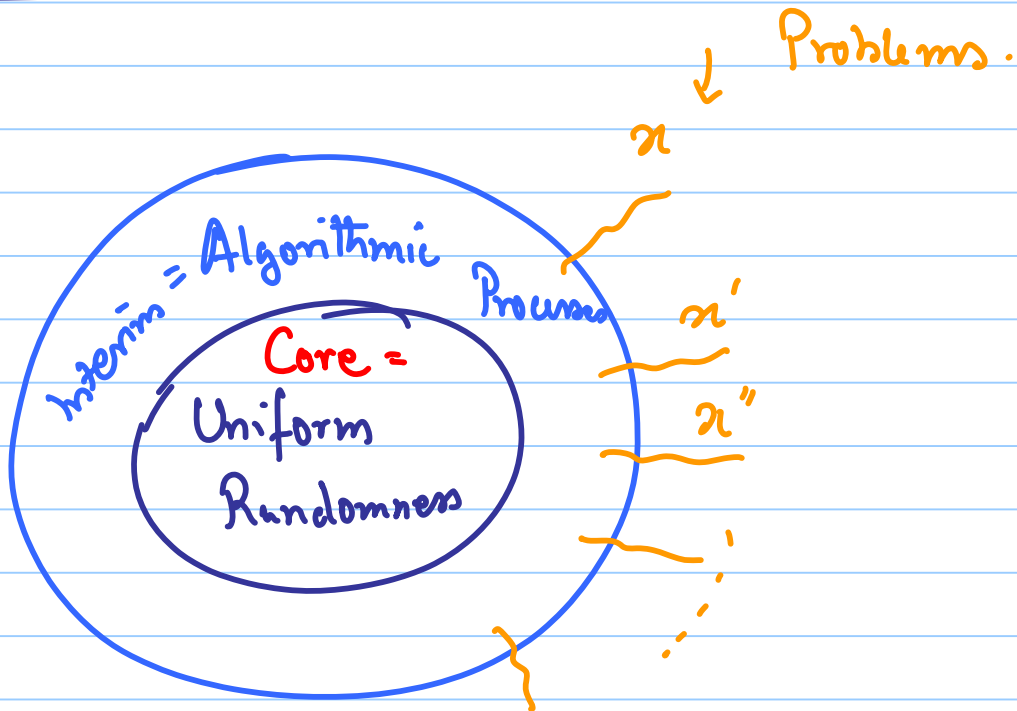 Problems.
x
Interim = Algorithmic Processes
x'
Core =
x"
Uniform
Randomness